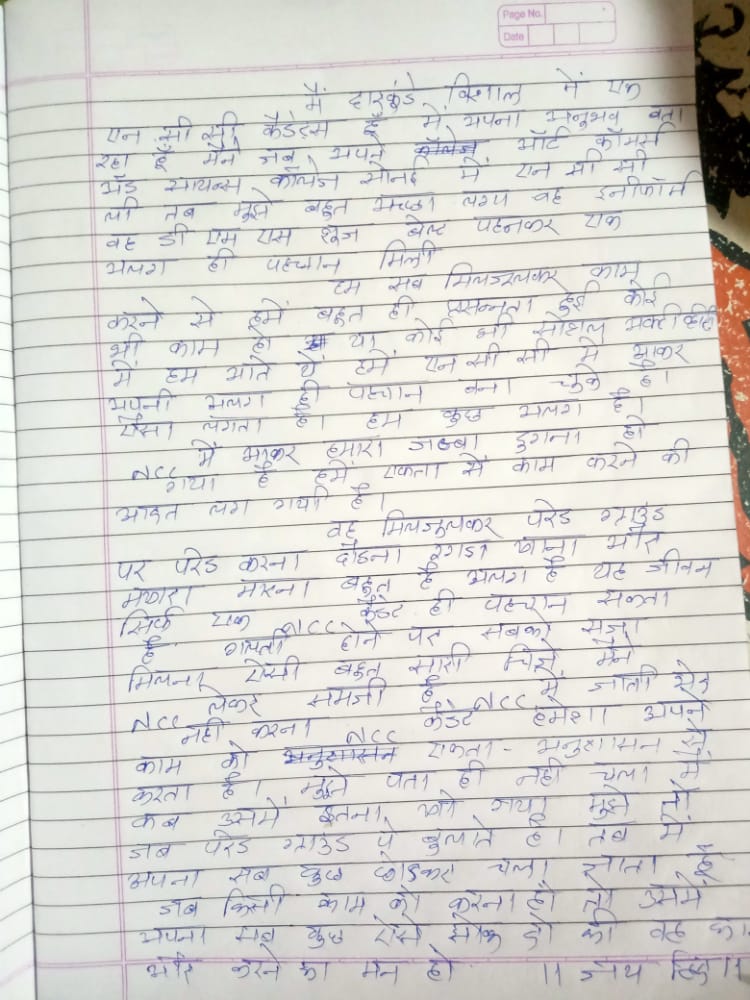 Page No.
Date
मैं हारकुंडे विशाल में एक
एन सी सी कैडेट्स हूँ में अपना अनुभव बता
रहा हूँ मैने जब अपने कॉलेज आर्ट कॉमर्स
अँड सायन्स कॉलेज सोनई में एन सी सी
ली तब मुझे बहुत अच्छा लगा वह इनीफॉर्म
वह डी एम एस शूज बेल्ट पहनकर एक
अलग ही पहचान मिली
हम सब मिलजुलकर काम
करने से हमें बहुत ही प्रसन्नता हुई कोई
भी काम हो या कोई भी सोशल
में हम आते थे हमें एन सी सी में आकर
अपनी अलग ही पहचान बना चुके है।
ऐसा लगता है। हम कुछ अलग है।
NCC में आकर हमारा जज्बा दुगना हो
गया है हमें एकता से काम करने की
आदत लग गयी है।
वह मिलजुलकर परेड ग्राउंड
पर परेड करना दौडना रगडा खाना और
नकारा मारना बहुत है अलग है यह जीवन
सिर्फ एक NCC कैडेट ही पहचान सकता
है गलती होने पर सबको सजा
मिलना ऐसी बहुत सारी चिजे मैने
NCC लेकर समजी है NCC में जाती भेद
नही करना NCC कैडेट हमेशा अपने
काम को अनुशासन एकता - अनुशासन से
करता है। मुझे पता ही नही चला में
कब उसमें इतना खो गया मुझे तो
जब परेड ग्राउंड पे बुलाते है। तब में
अपना सब कुछ छोडकर चला जाता हूँ
जब किसी काम को करना हो तो उसमें
अपना सब कुछ ऐसे झोक दो की वह काम
और करने का मन हो ॥ जय हिंद ॥